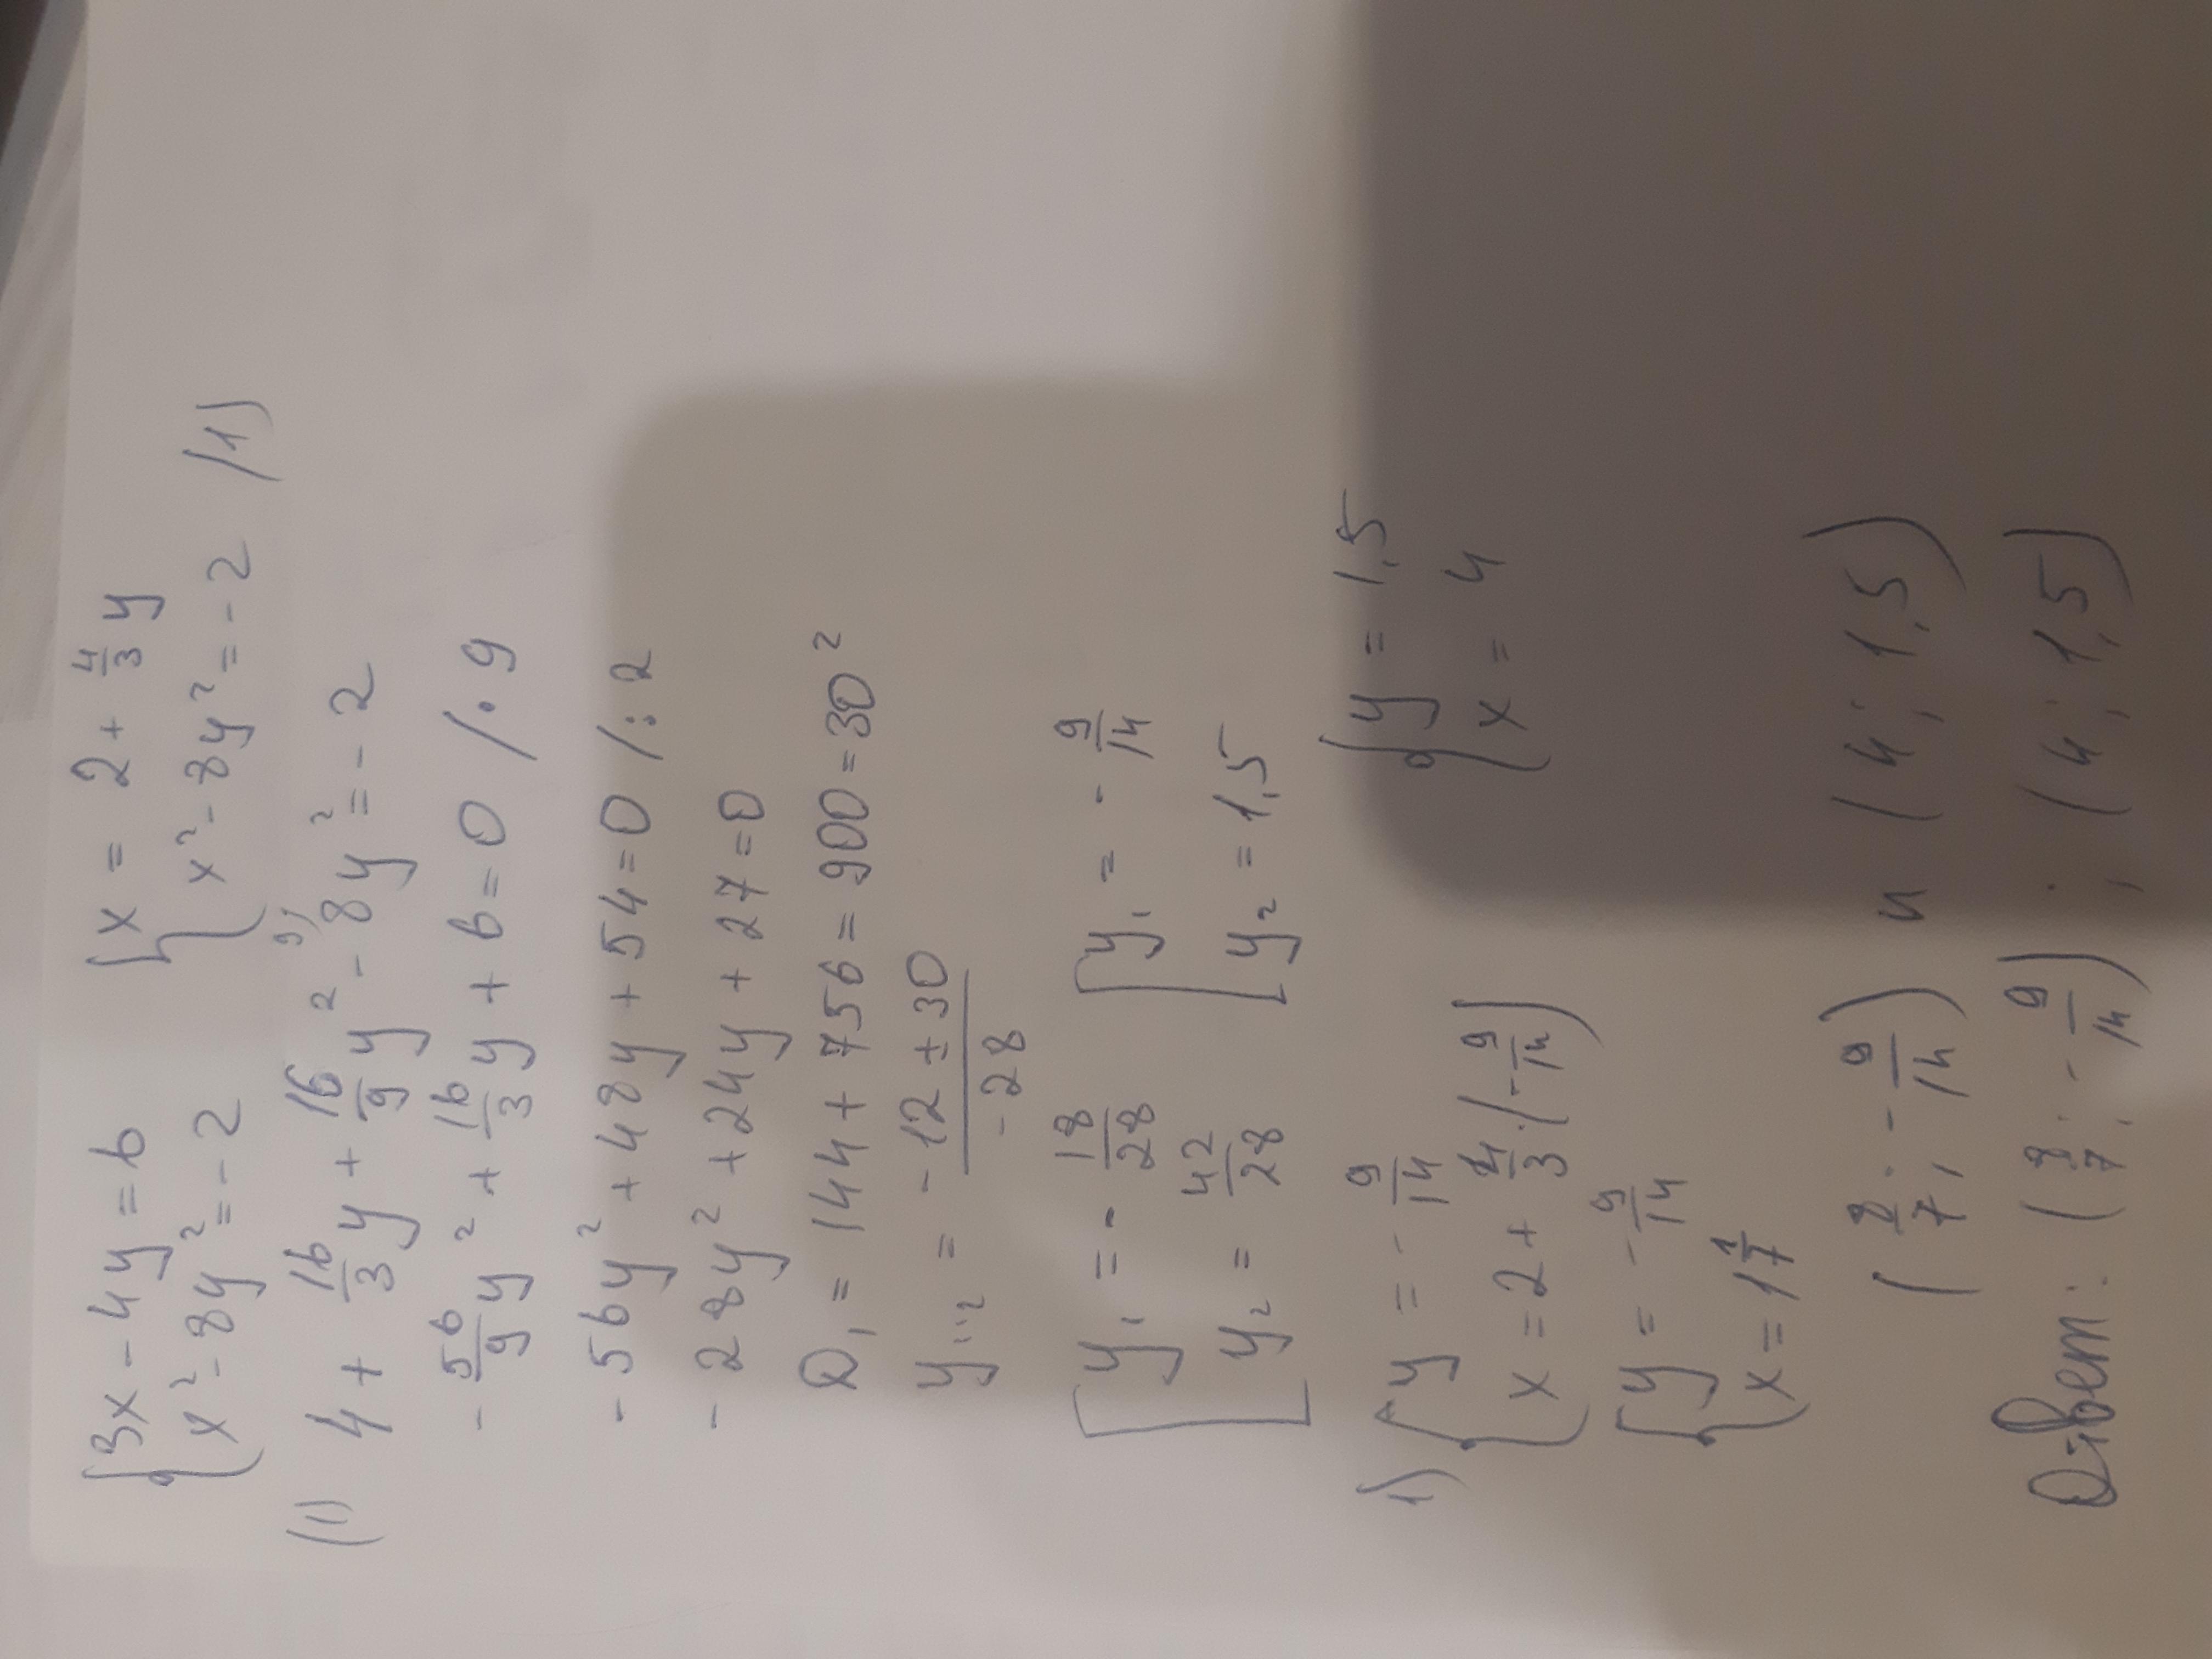 {3x - 4y = 6 {x = 2 + 4/3 y
x² - 8y² = -2 x² - 8y² = -2 (1)
(1) 4 + 16/3 y + 16/9 y² - 9) 8y² = -2
- 56/9 y² + 16/3 y + 6 = 0 / · 9
- 56y² + 48y + 54 = 0 / : 2
- 28y² + 24y + 27 = 0
D₁ = 144 + 756 = 900 = 30²
y₁,₂ = (-12 ± 30)/(-28)
[y₁ = - 18/28 [y₁ = - 9/14
y₂ = 42/28 y₂ = 1,5
1) {y = - 9/14 {y = 1,5
x = 2 + 4/3 · (- 9/14) x = 4
{y = - 9/14
x = 1 1/7
(8/7 ; - 9/14) и (4 ; 1,5)
Ответ: (8/7 ; - 9/14) ; (4 ; 1,5)